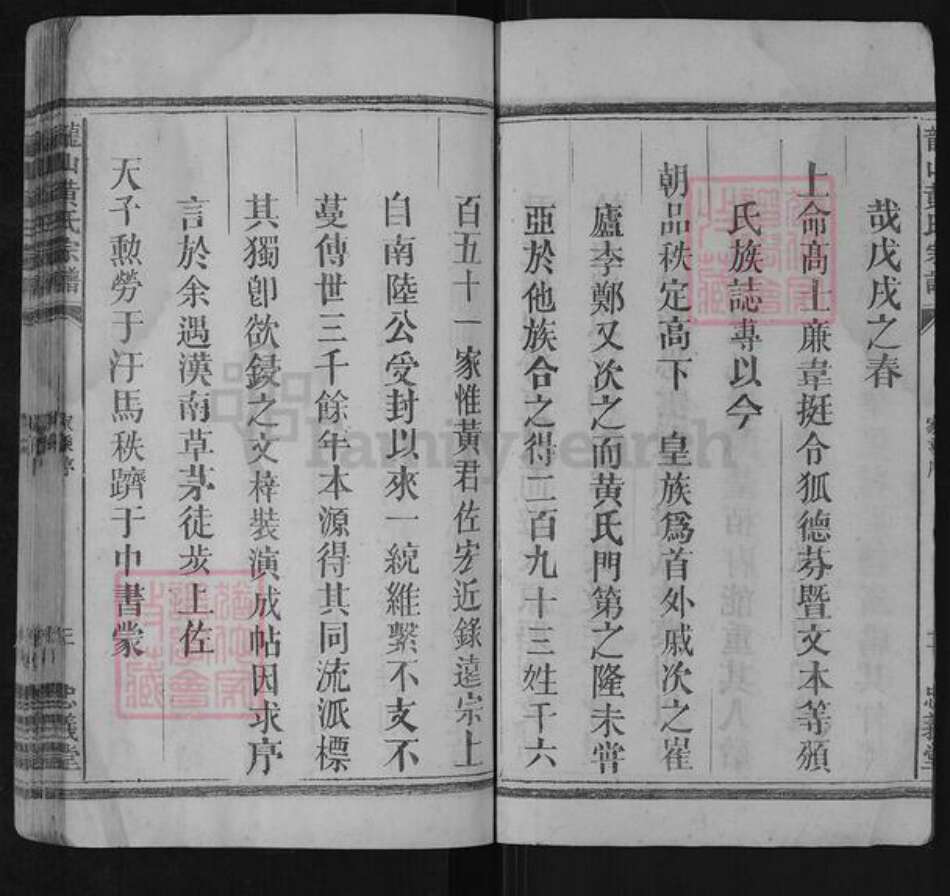 哉戊戌之春
上命高士廉韋挺令狐德芬暨文本等頒
氏族誌專以今
朝品秩定高下 皇族爲首外戚次之崔
盧李鄭又次之而黄氏門第之隆未甞
亞於他族合之得二百九十三姓千六
百五十一家惟黃君佐宏近錄遠宗上
自南陸公受封以來一統維繫不支不
蔓傳世三千餘年本源得其同流派標
其獨卽欲鋟之文梓裝演成帖因求序
言於余遇漢南草茅徒步上佐
天子勲勞于汗馬秩躋于中書蒙
龍山黄氏宗譜
三
忠義堂
FamilySearch